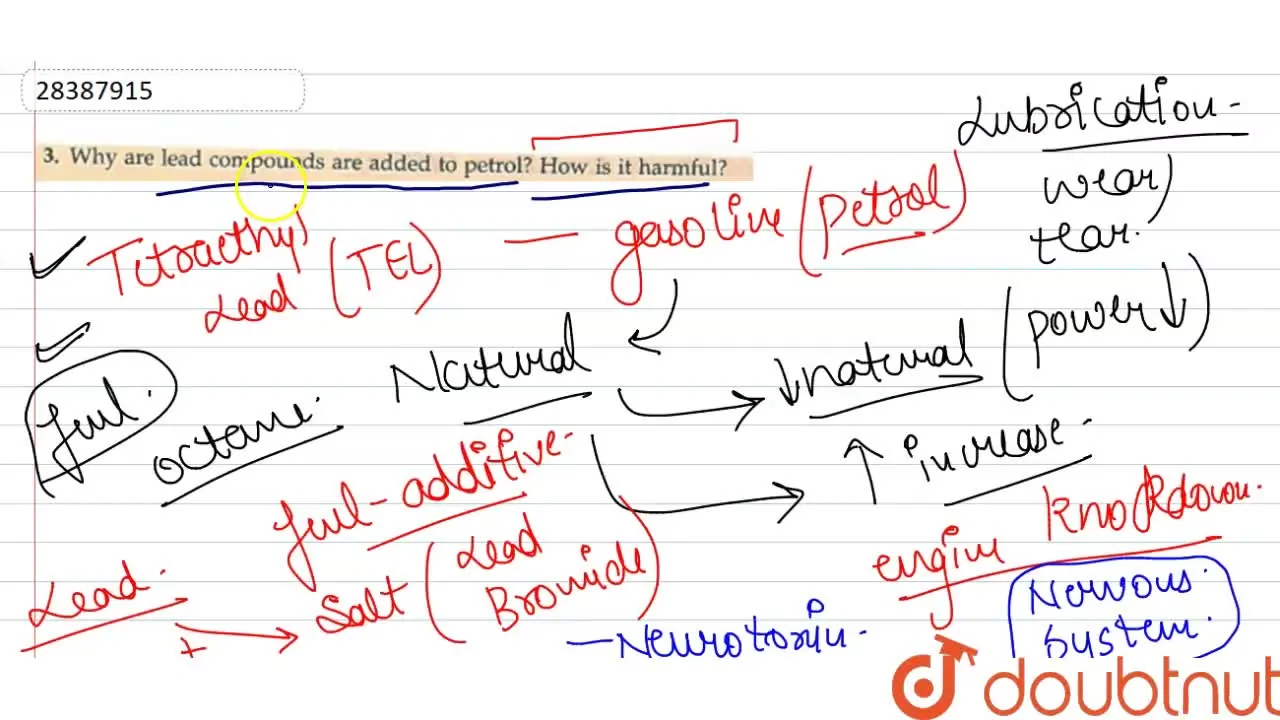 28387915
3. Why are lead compounds are added to petrol? How is it harmful?
Lubrication-
wear/
tear.
Tetraethyl
Lead (TEL)
— gasoline (Petrol)
fuel.
octane.
Natural
↓natural (power↓)
↑ increase.
fuel-additive-
engine knockdown.
Lead.
+
Salt (Lead
Bromide)
— Neurotoxin.
Nervous.
System.
doubtnut